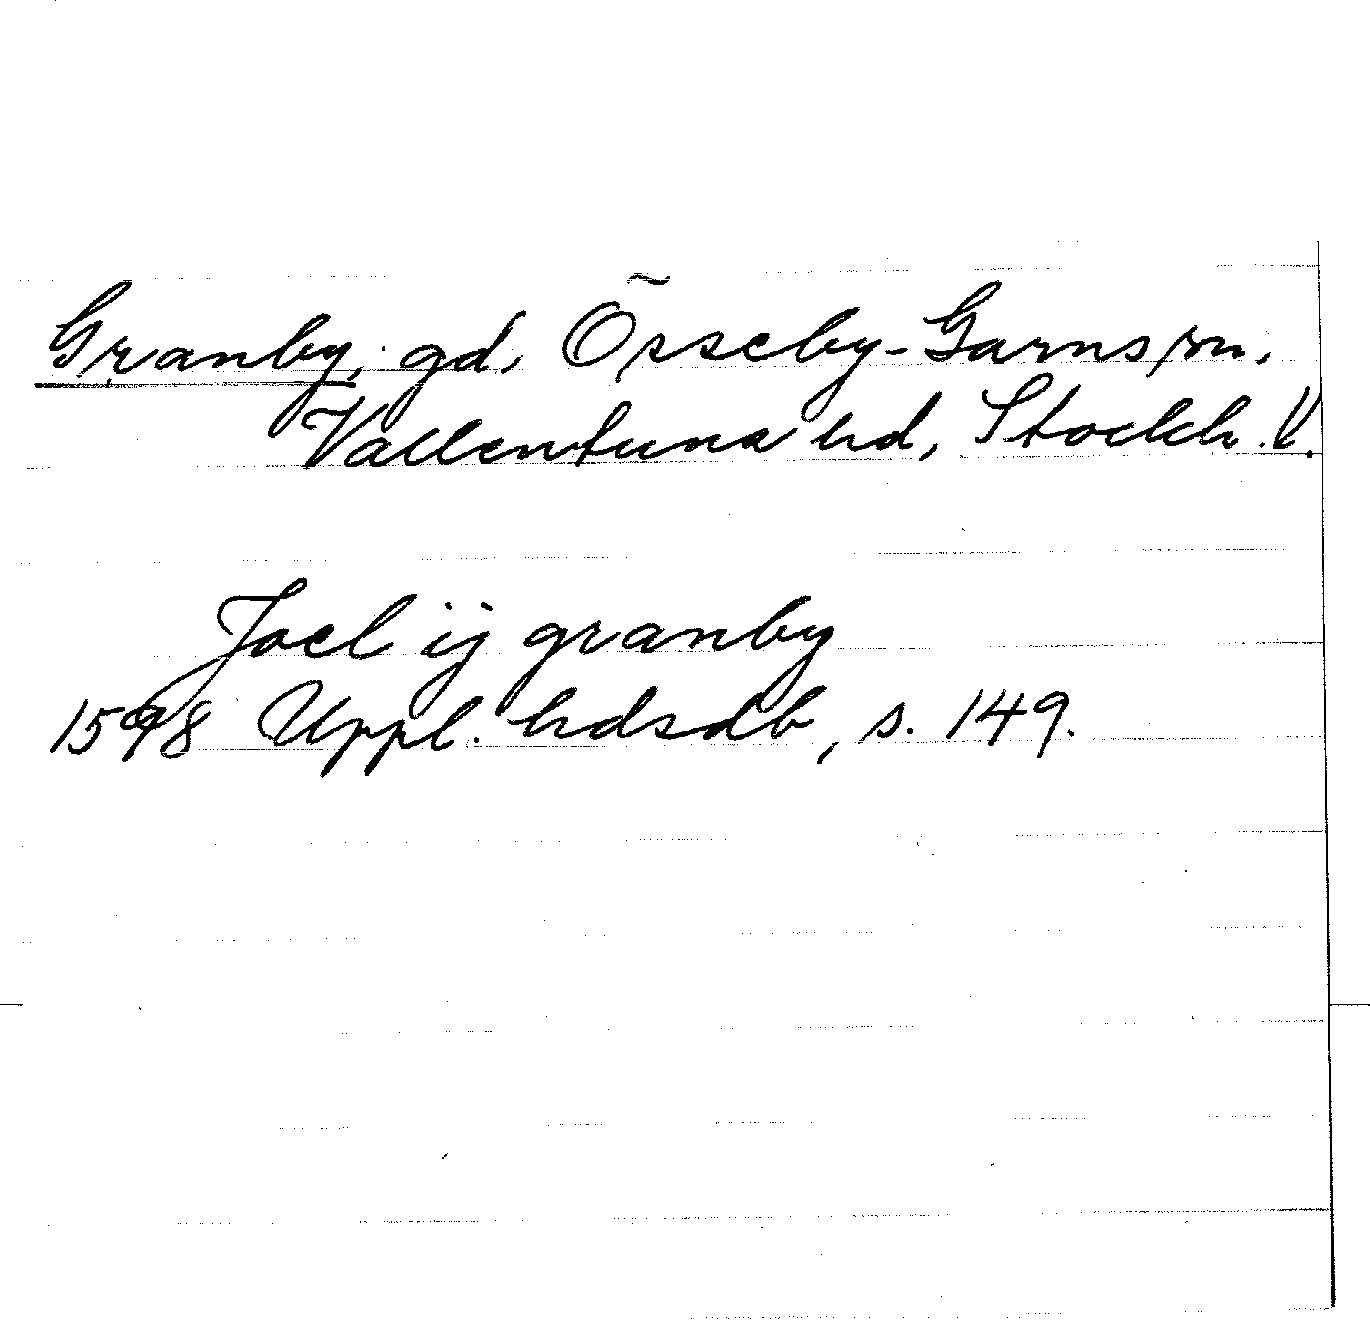 Granby, gd, Össeby-Garns sn,
Vallentuna hd, Stockh. l.
Joel ij granby
1598 Uppl. hdsdb, s. 149.